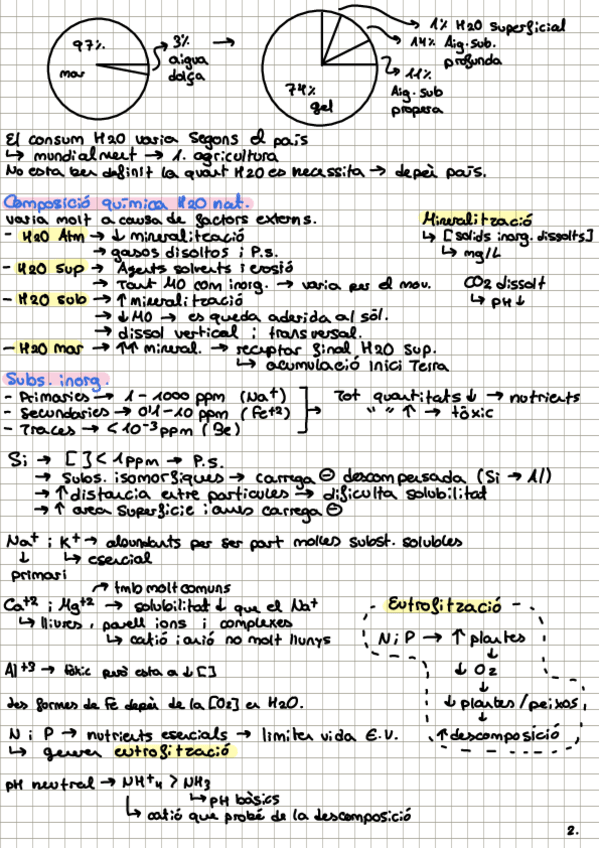 97%.
mar
3%
aigua
dolça
74%
gel
1% H2O superficial
14% Aig. sub.
profunda
11%
Aig. sub
propera
El consum H2O varia segons el país
↳ mundialment → 1. agricultura
No esta ben definit la quat H2O es necessita → depèn país.
Composició química H2O nat.
varia molt a causa de factors externs.
- H2O Atm → ↓ mineralització
→ gasos disolts i P.s.
- H2O Sup → Agents solvents i erosió
→ Tant MO com inorg. → varia per el mov.
- H2O sub → ↑ mineralització
→ ↓ MO → es queda aderida al sòl.
→ dissol vertical i transversal.
- H2O mar → ↑↑ mineral. → receptor final H2O sup.
↳ acumulació Inici Terra
Mineralització
↳ [solids inorg. dissolts]
↳ mg/L
CO2 dissolt
↳ pH ↓
Subs. inorg.
- Primaries → 1 - 1000 ppm (Na+)
- Secundaries → 0'1 - 10 ppm (Fe+2)
- Traces → < 10⁻³ ppm (Be)
Tot quantitats ↓ → nutrients
" " ↑ → tòxic
Si → [ ] < 1 ppm → P.s.
→ Subs. isomorfiques → carrega ⊖ descompensada (Si → Al)
→ ↑ distancia entre particules → dificulta solubilitat
→ ↑ area superficie i anis carrega ⊖
Na+ i K+ → abundants per ser part moltes subst. solubles
↓ ↳ esencial
primari
↗ tmb molt comuns
Ca+2 i Mg+2 → solubilitat ↓ que el Na+
↳ lliures, parell ions i complexes
↳ catió i anió no molt llunys
Al+3 → tòxic però esta a ↓ [ ]
les formes de Fe depèn de la [O2] en H2O.
N i P → nutrients esencials → limiten vida E.V.
↳ generen eutrofització
pH neutral → NH+4 > NH3
↳ pH bàsics
↳ catió que probé de la descomposició
Eutrofització
N i P → ↑ plantes
↓
↓ O2
↓
↓ plantes / peixos
↓
↑ descomposició
2.